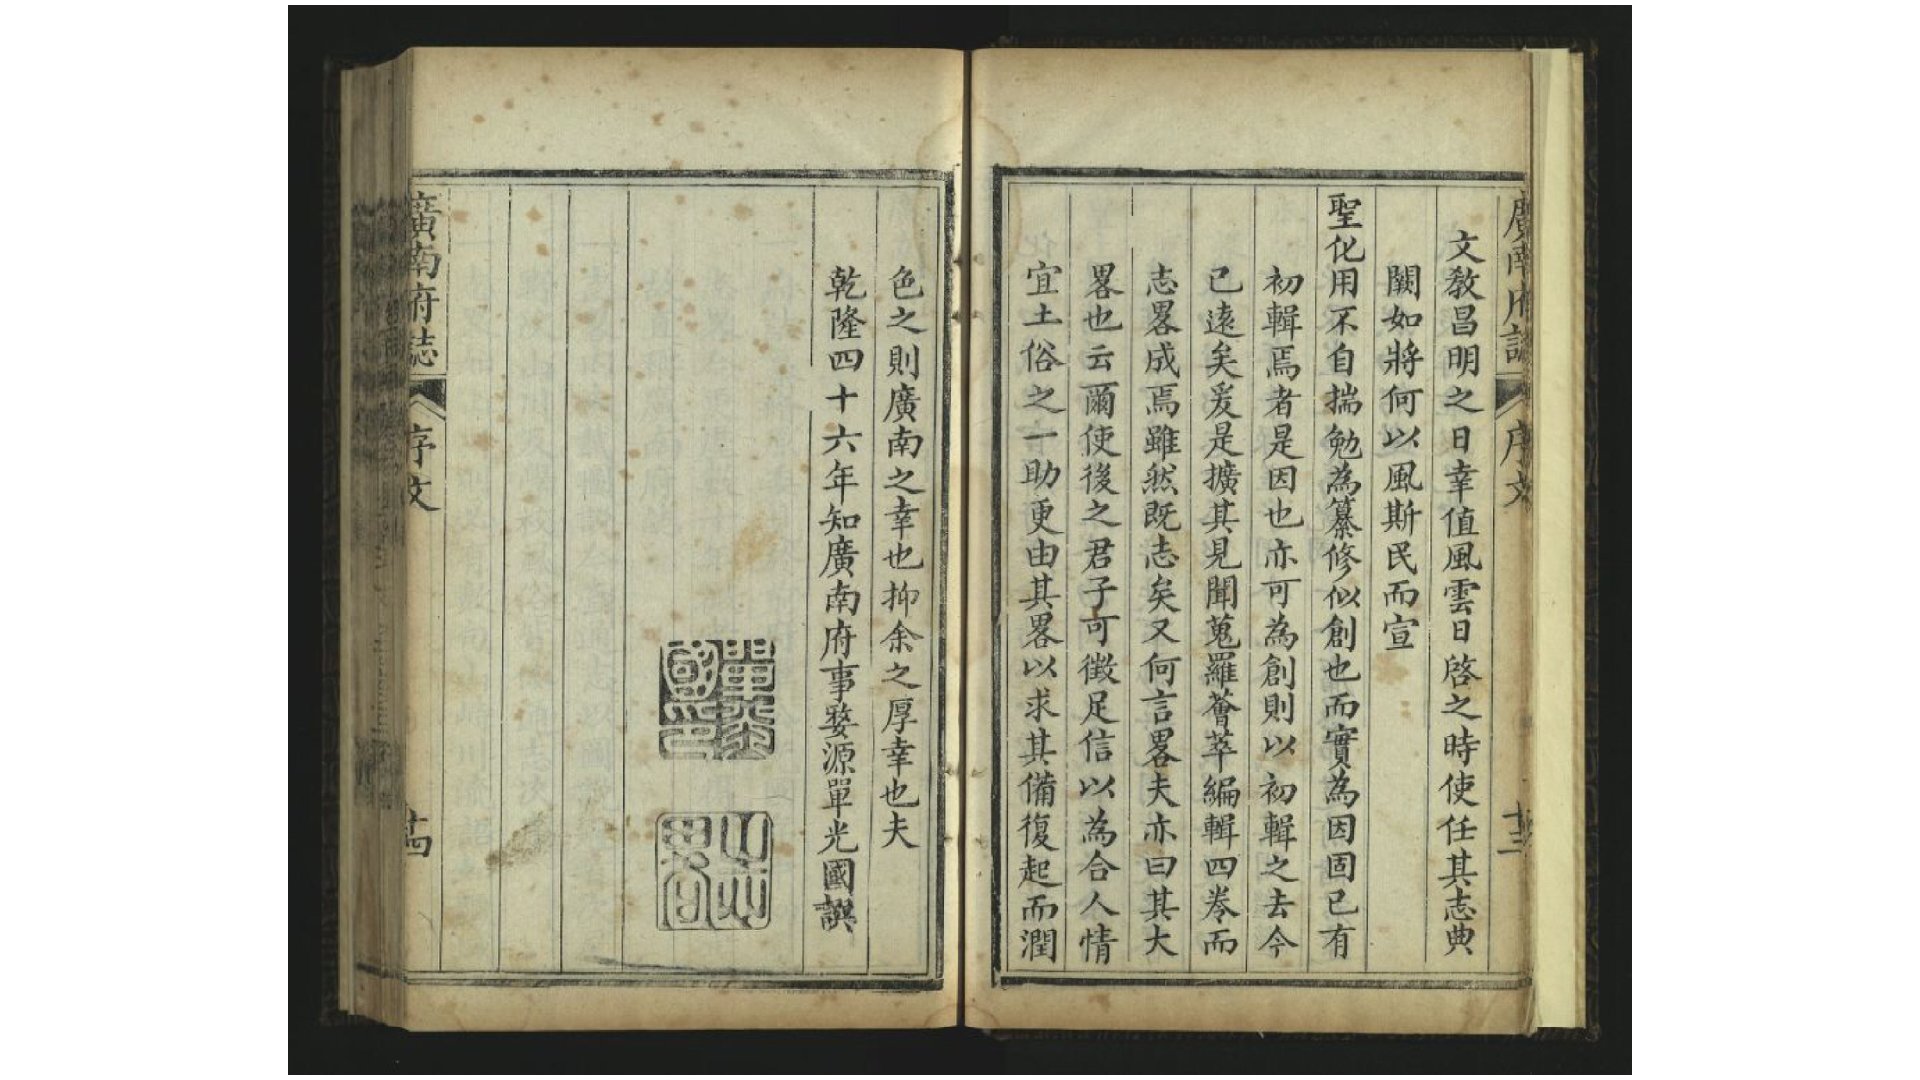 廣南府誌 序文 十三
文敎昌明之日幸值風雲日啓之時使任其志典
闕如將何以風斯民而宣
聖化用不自揣勉為纂修似創也而實為因固已有
初輯焉者是因也亦可為創則以初輯之去今
已遠矣爰是擴其見聞蒐羅薈萃編輯四卷而
志畧成焉雖然既志矣又何言畧夫亦曰其大
畧也云爾使後之君子可徵足信以為合人情
宜土俗之一助更由其畧以求其備復起而潤
色之則廣南之幸也抑余之厚幸也夫
乾隆四十六年知廣南府事婺源單光國譔
廣南府誌 序文 十四